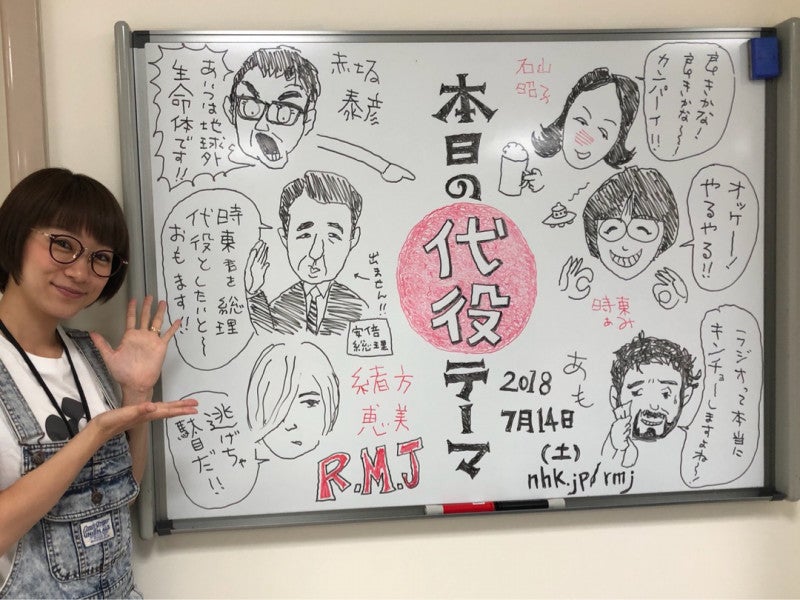 あいつは地球外
生命体です!!
赤坂
泰彦
時東を総理
代役としたいと〜
おもます!!
出ません!!
安倍
総理
逃げちゃ
駄目だ!!
緒方
恵美
R.M.J
本日の代役テーマ
石山
良きかな!
良きかな〜!
カンパーイ!!
オッケー!
やるやる!!
時東
ぁみ
あも
ラジオって本当に
キンチョーしますよね〜!
2018
7月14日
(土)
nhk.jp/rmj